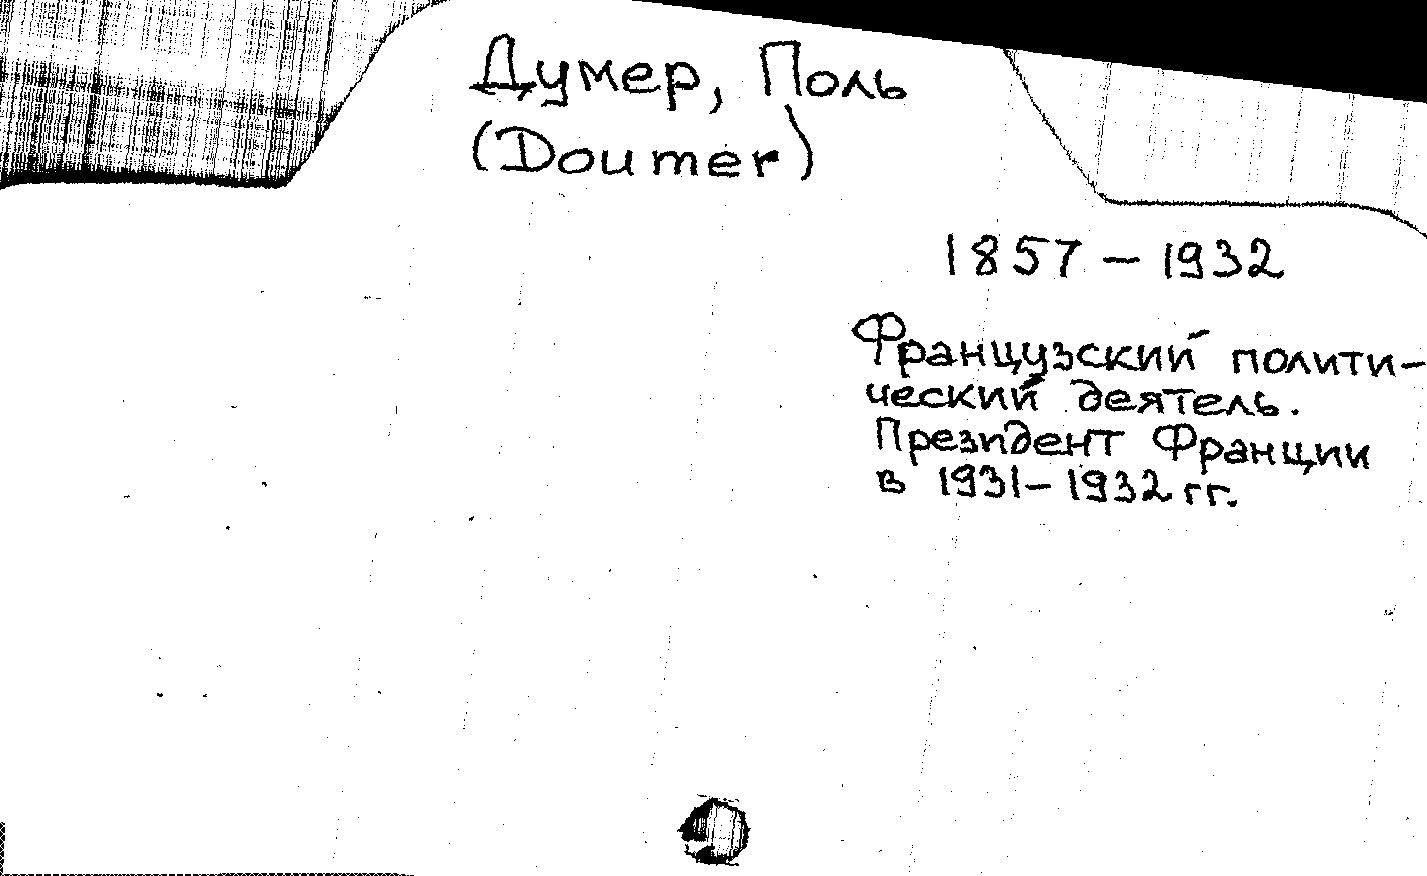 Думер, Поль
(Doumer)
1857 – 1932
Французский полити-
ческий деятель.
Президент Франции
в 1931 – 1932 гг.